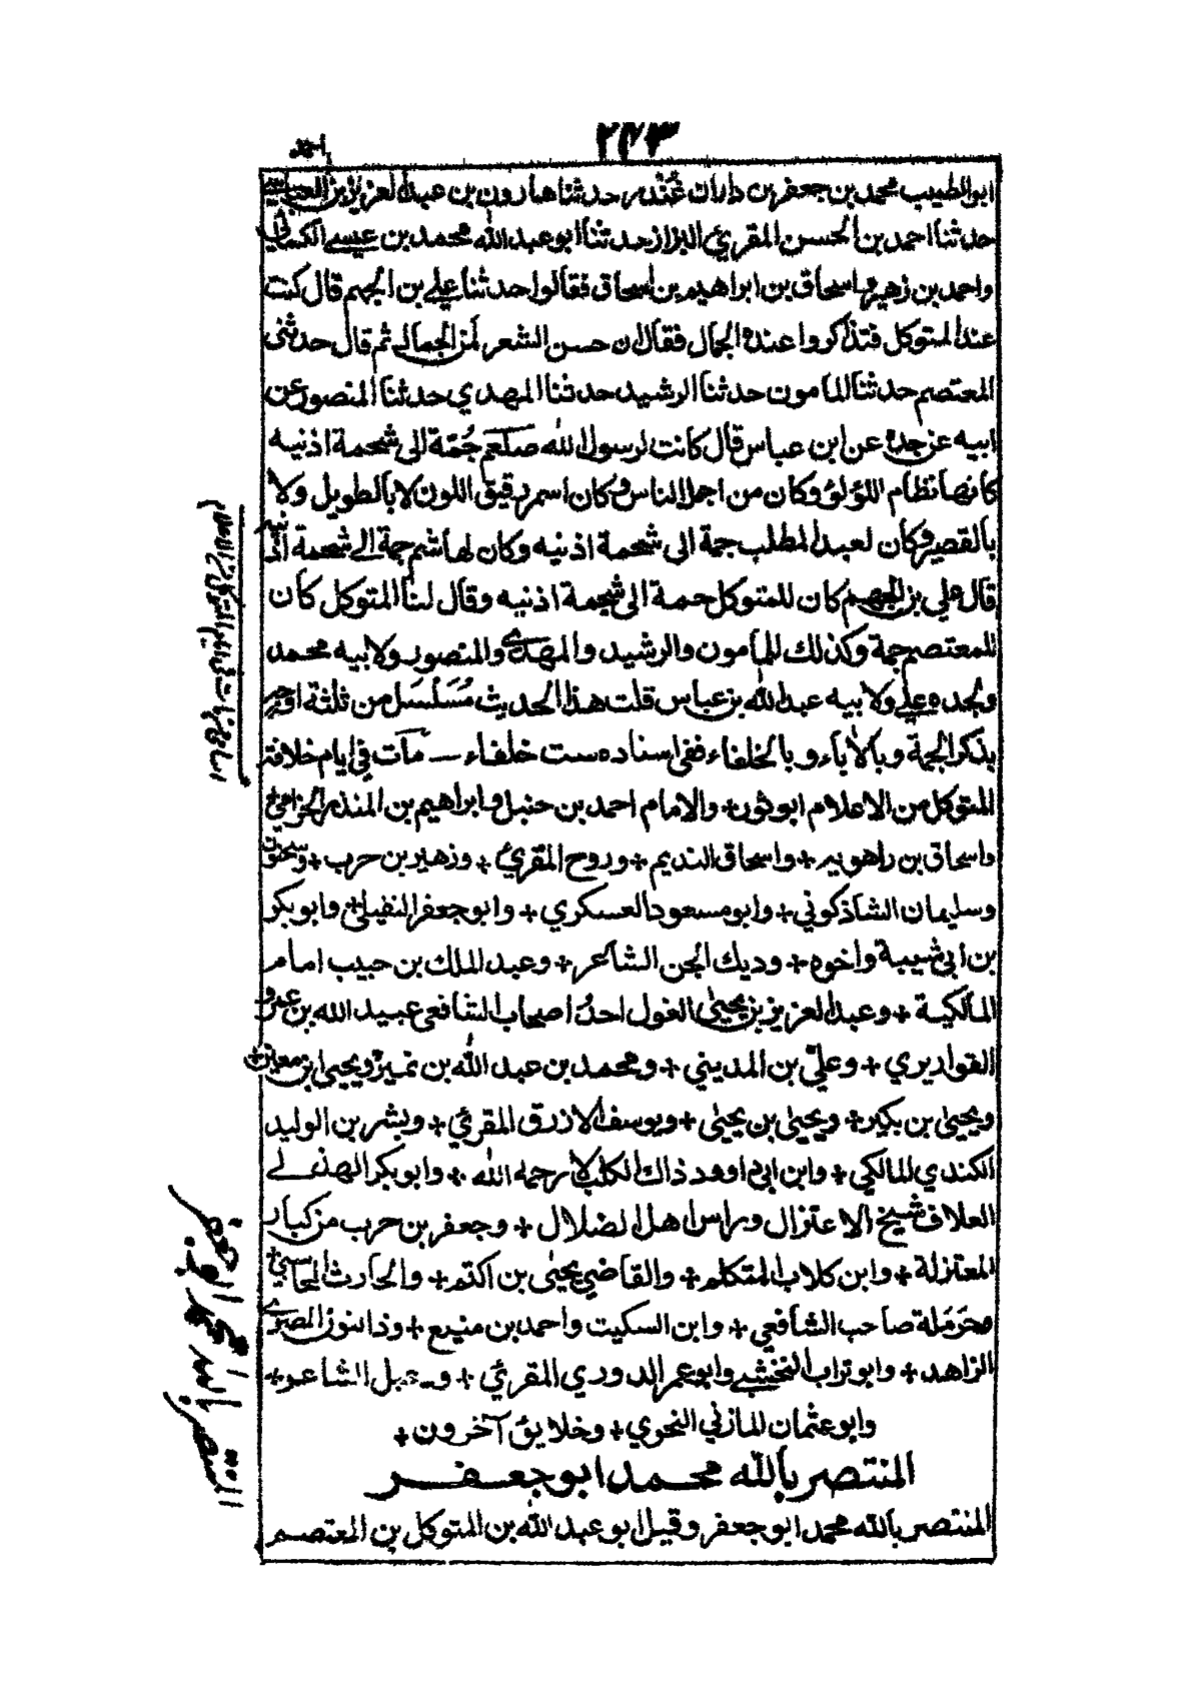 ٢٤٣
ابو الطيب محمد بن جعفر بن داران غُنْدر حدثنا هارون بن عبد العزيز بن العباسي
حدثنا احمد بن الحسن المقرئ البزاز حدثنا ابو عبد الله محمد بن عيسى الكسائي
واحمد بن زهير واسحاق بن ابراهيم بن اسحاق فقالوا حدثنا علي بن الجهم قال كنت
عند المتوكل فتذاكروا عنده الجمال فقال ان حسن الشعر لمن الجمال ثم قال حدثني
المعتصم حدثنا المامون حدثنا الرشيد حدثنا المهدي حدثنا المنصور عن
ابيه عن جده عن ابن عباس قال كانت لرسول الله صلعم جُمّة الى شحمة اذنيه
كانها نظام اللؤلؤ وكان من اجمل الناس وكان اسمر رقيق اللون لا بالطويل ولا
بالقصير وكان لعبد المطلب جمة الى شحمة اذنيه وكان لهاشم جمة الى شحمة اذنيه
قال علي بن الجهم كان للمتوكل جمة الى شحمة اذنيه وقال لنا المتوكل كان
للمعتصم جمة وكذلك للمامون والرشيد والمهدي والمنصور ولابيه محمد
ولجده علي ولابيه عبد الله بن عباس قلت هذا الحديث مُسَلْسَل من ثلثة اوجه
بذكر الجمة وبالاباء وبالخلفاء ففي اسناده ست خلفاء — مات في ايام خلافة
المتوكل من الاعلام ابو ثور+ والامام احمد بن حنبل وابراهيم بن المنذر الحزامي+
واسحاق بن راهويه+ واسحاق النديم+ وروح المقرئ+ وزهير بن حرب+ وسحنون
وسليمان الشاذكوني+ وابو مسعود العسكري+ وابو جعفر النفيلي+ وابو بكر
بن ابي شيبة واخوه+ وديك الجن الشاعر+ وعبد الملك بن حبيب امام
المالكية+ وعبد العزيز بن يحيى الغول احدُ اصحاب الشافعي عبيد الله بن عمرو
القواريري+ وعليّ بن المديني+ ومحمد بن عبد الله بن نمير ويحيى بن معين+
ويحيى بن بكير+ ويحيى بن يحيى+ ويوسف الازرق المقرئ+ وبشر بن الوليد
الكندي المالكي+ وابن ابي دواد ذاك الكلب لا رحمه الله+ وابو بكر الهذلي
العلاف شيخ الاعتزال وراس اهل الضلال+ وجعفر بن حرب من كبار
المعتزلة+ وابن كلاب المتكلم+ والقاضي يحيى بن اكثم+ والحارث المحاسبي+
وحَرْمَلة صاحب الشافعي+ وابن السكيت واحمد بن منيع+ وذا النون المصري
الزاهد+ وابو تراب النخشبي وابو عمر الدوري المقرئ+ ودعبل الشاعر+
وابو عثمان المازني النحوي+ وخلايق آخرون+
المنتصر بالله محمد ابو جعفر
المنتصر بالله محمد ابو جعفر وقيل ابو عبد الله بن المتوكل بن المعتصم
المنتصر بالله محمد ابو جعفر